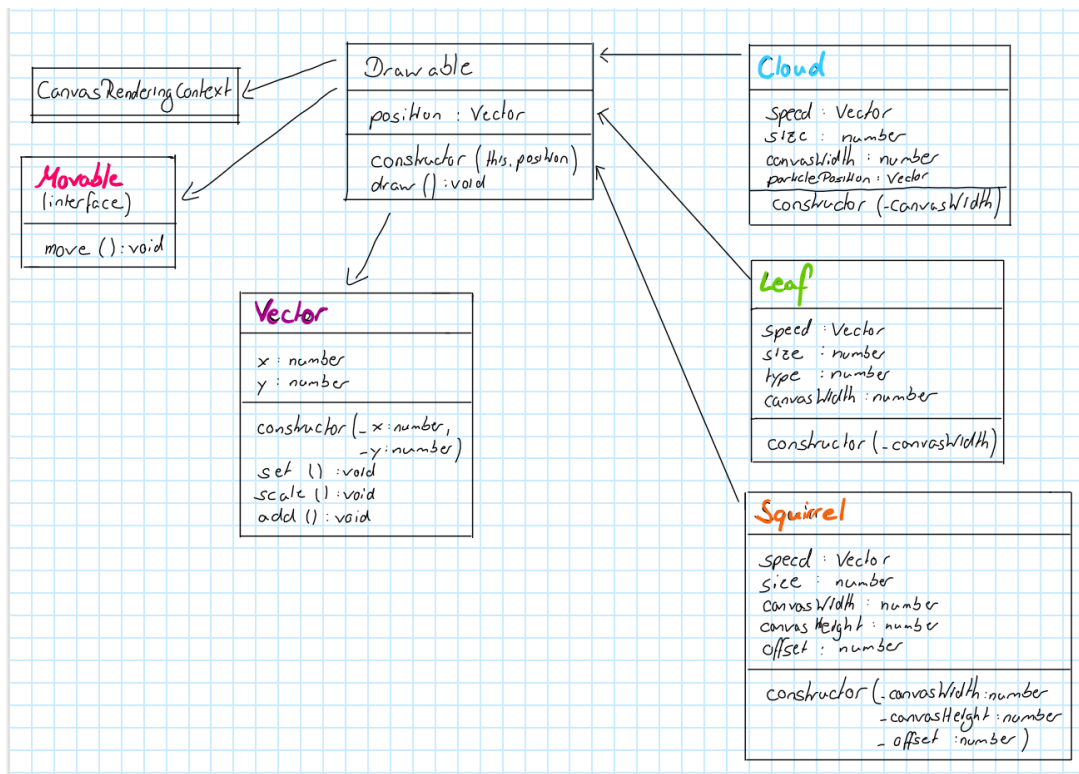 CanvasRenderingContext
Movable
(interface)
move () : void
Drawable
position : Vector
constructor (this.position)
draw () : void
Vector
x : number
y : number
constructor (_x : number,
_y : number)
set () : void
scale () : void
add () : void
Cloud
speed : Vector
size : number
canvasWidth : number
particlePosition : Vector
constructor (_canvasWidth)
Leaf
speed : Vector
size : number
type : number
canvasWidth : number
constructor (_canvasWidth)
Squirrel
speed : Vector
size : number
canvasWidth : number
canvasHeight : number
offset : number
constructor (_canvasWidth : number
_canvasHeight : number
_offset : number)